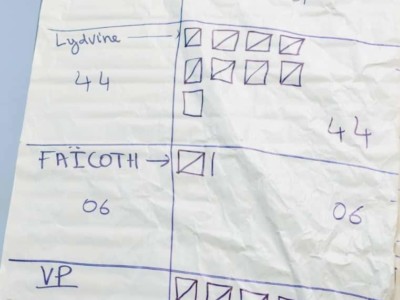 Lydvine
44
44
FAÏCOTH
06
06
VP